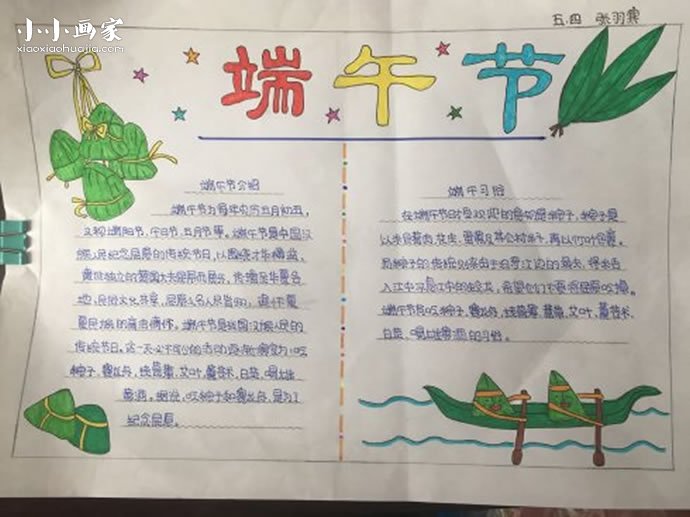 小小画家
xiaoxiaohuajia.com
五.四 张羽霁
端午节
端午节介绍
端午节为每年农历五月初五,
又称端阳节,午日节,五月节等。端午节是中国汉
族人民纪念屈原的传统节日,以围绕才华横溢、
遗世独立的楚国大夫屈原而展开,传播至华夏各
地,民俗文化共享,屈原之名人尽皆知,追怀华夏
民族的高洁情怀。端午节是我国汉族人民的
传统节日。这一天必不可少的活动逐渐演变为:吃
粽子,赛龙舟,挂菖蒲,艾叶,薰苍术,白芷,喝雄
黄酒。据说,吃粽子和赛龙舟,是为了
纪念屈原。
端午习俗
在端午节最受欢迎的食物是粽子,粽子是
以米包着肉,花生,蛋黄及其他材料,再以竹叶包裹。
包粽子的传统
入江中
端午节民吃粽子,赛龙舟,挂菖蒲,蒿草,艾叶,薰苍术,
白芷,喝雄黄酒的习俗。